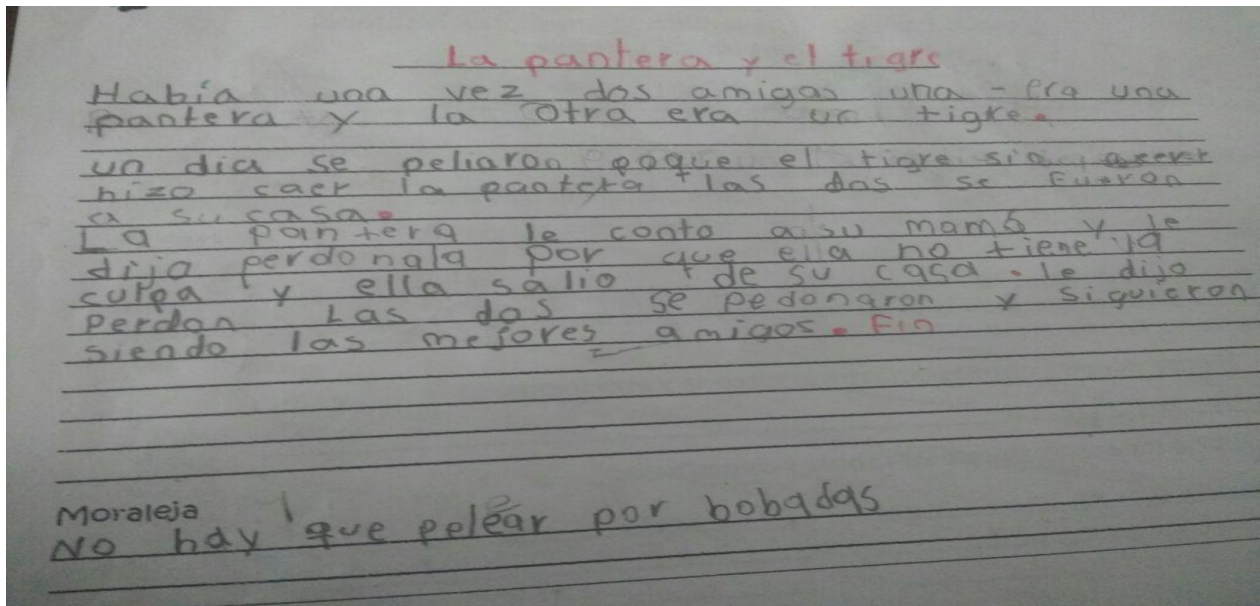 La pantera y el tigre
Había una vez dos amigas una - era una
pantera y la otra era un tigre.
un dia se peliaron poque el tigre sin
hizo caer la pantera las dos se fueron
a su casa.
La pantera le conto a su mamá y le
dijo perdonala por que ella no tiene la
culpa y ella salio de su casa. le dijo
Perdon Las dos se pedonaron y siguieron
siendo las mejores amigos. Fin
Moraleja
No hay que pelear por bobadas